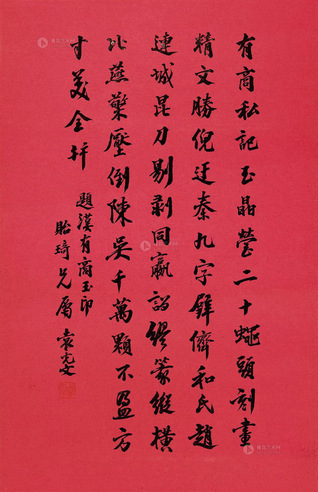 有商私記玉晶瑩二十蠅頭刻畫
精文勝倪迂秦九字鉨儕和氏趙
連城昆刀剔剥同嬴詔繆篆縱橫
比燕藁壓倒陳吳千萬顆不盈方
寸美全軿
題漢有商玉印
貽琦兄屬 袁克文